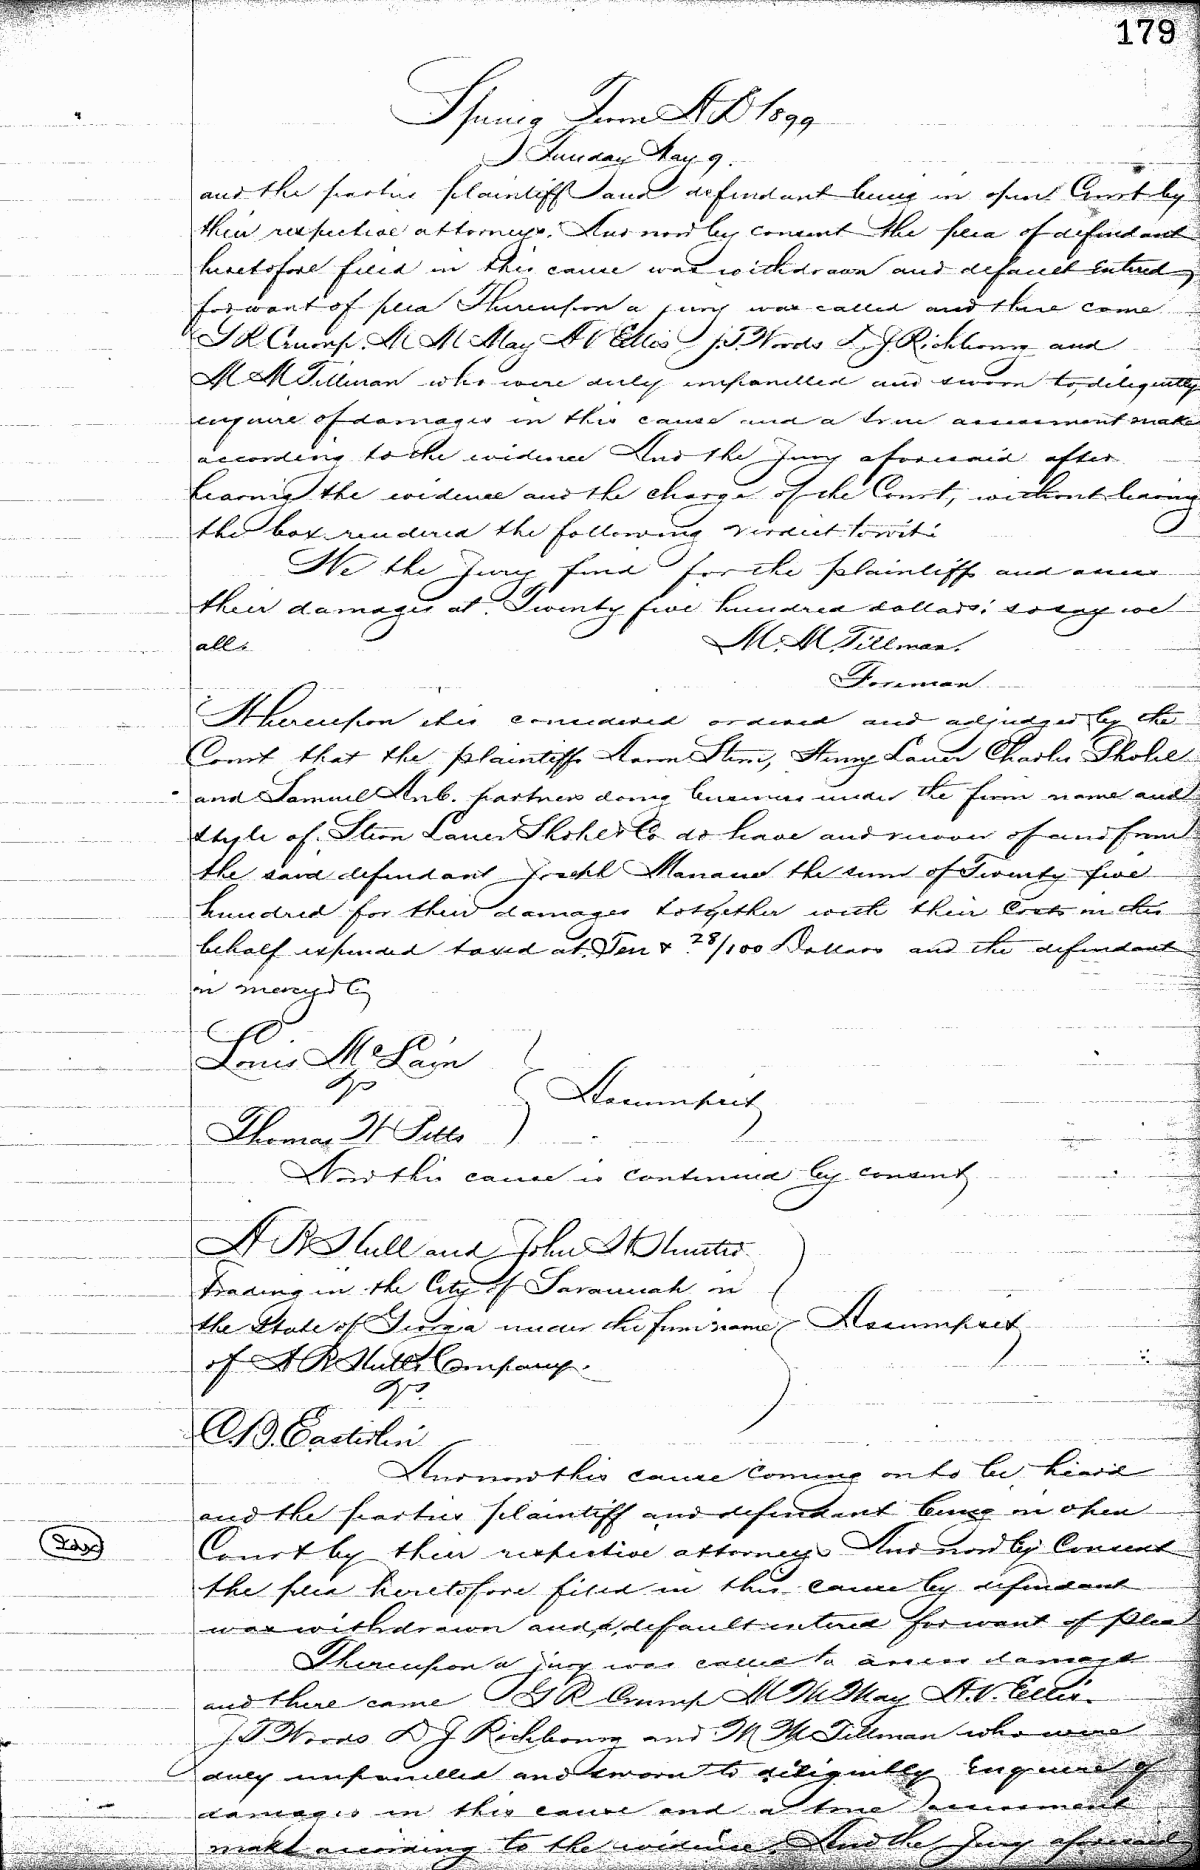 179
Spring Term A D 1899
Tuesday May 9.
and the parties plaintiff and defendant being in open Court by
their respective attorneys. And now by consent the plea of defendant
heretofore filed in this cause was withdrawn and default entered
for want of plea Thereupon a jury was called and there came
G R Crump. M M May A V Ellis J. T. Woods D. J Richbourg and
M M Tillman who were duly impanelled and sworn to diligently
enquire of damages in this cause and a true assessment make
according to the evidence And the Jury aforesaid after
hearing the evidence and the charge of the Court, without leaving
the box rendered the following verdict towit:
We the Jury find for the plaintiff and assess
their damages at Twenty five hundred dollars: so say we
all.
M. M. Tillman.
Foreman
Whereupon it is considered ordered and adjudged by the
Court that the plaintiffs Aaron Stern, Henry Lauer Charles Shohl
and Samuel partners doing business under the firm name and
style of Stern Lauer Shohl & Co do have and recover of and from
the said defendant Joseph the sum of Twenty five
hundred for their damages totgether with their Costs in this
behalf expended taxed at Ten & 28/100 Dollars and the defendant
in mercy &C
Louis McLain
vs
Thomas H Pitts
Assumpsit
Now this cause is continued by consent
A R Hull and John H Hunter
trading in the City of Savannah in
the State of Georgia under the firm name
of A R Hull & Company.
vs.
Assumpsit
C. B. Easterlin
And now this cause coming on to be heard
and the parties plaintiff and defendant being in open
Court by their respective attorneys And now by Consent
the plea heretofore filed in this cause by defendant
was withdrawn and default entered for want of plea
Thereupon a jury was called to assess damage
and there came G R Crump M M May A. V. Ellis.
J. T Woods D J Richbourg and M M Tillman who were
duly impanelled and sworn to diligently Enquire of
damages in this cause and a true assessment
make according to the evidence. And the Jury aforesaid